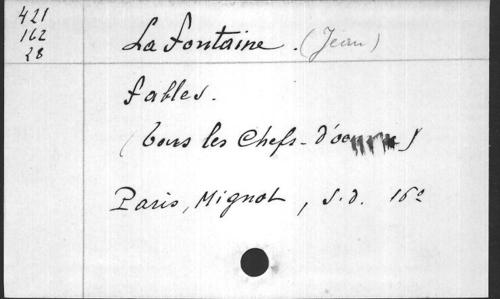 421
162
28
La Fontaine. (Jean)
Fables.
(Tous les Chefs-d'oeuvre)
Paris, Mignot, s.d. 16º